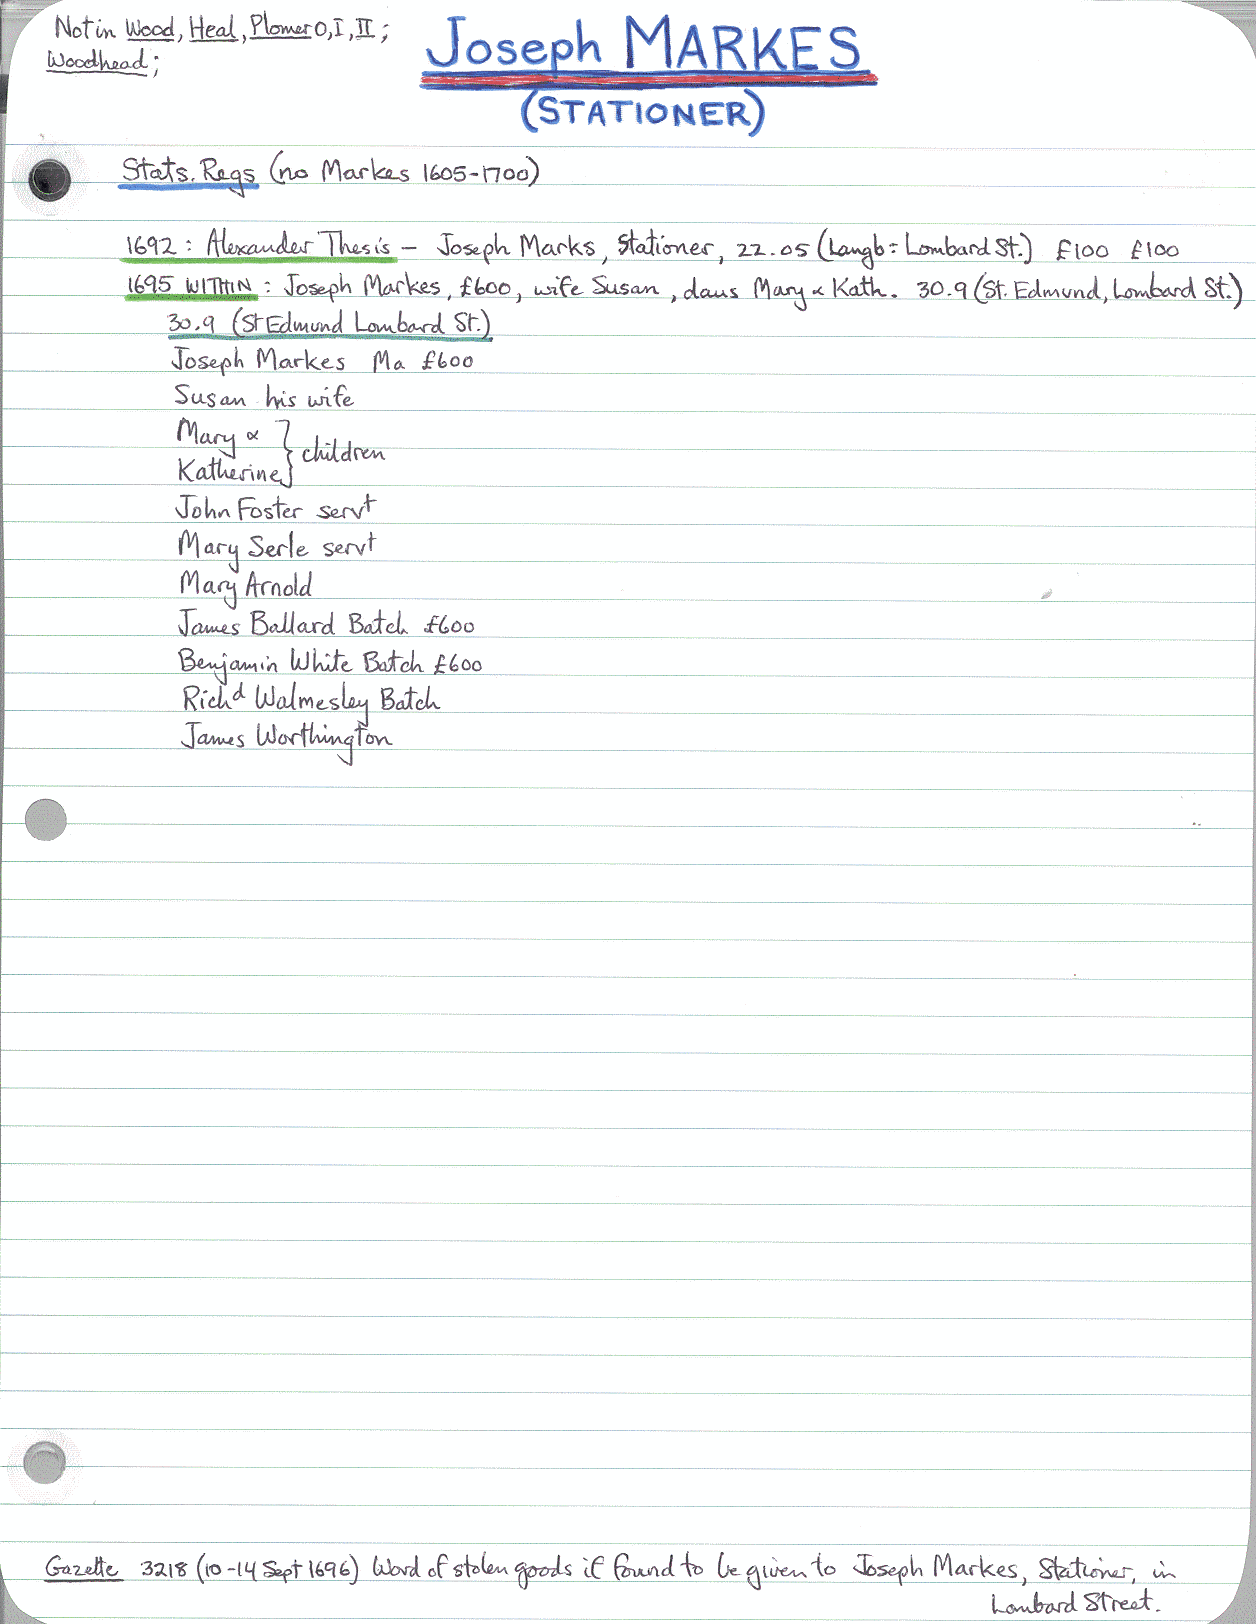 Not in Wood, Heal, Plomer O, I, II;
Woodhead;
Joseph MARKES
(STATIONER)
Stats. Regs (no Markes 1605-1700)
1692: Alexander Thesis - Joseph Marks, Stationer, 22.05 (Langb: Lombard St.) £100 £100
1695 WITHIN: Joseph Markes, £600, wife Susan, daus Mary & Kath. 30.9 (St. Edmund, Lombard St.)
30.9 (St Edmund Lombard St.)
Joseph Markes Ma £600
Susan his wife
Mary &
Katherine } children
John Foster servt
Mary Serle servt
Mary Arnold
James Ballard Batch £600
Benjamin White Batch £600
Richd Walmesley Batch
James Worthington
Gazette 3218 (10-14 Sept 1696) Word of stolen goods if found to be given to Joseph Markes, Stationer, in
Lombard Street.